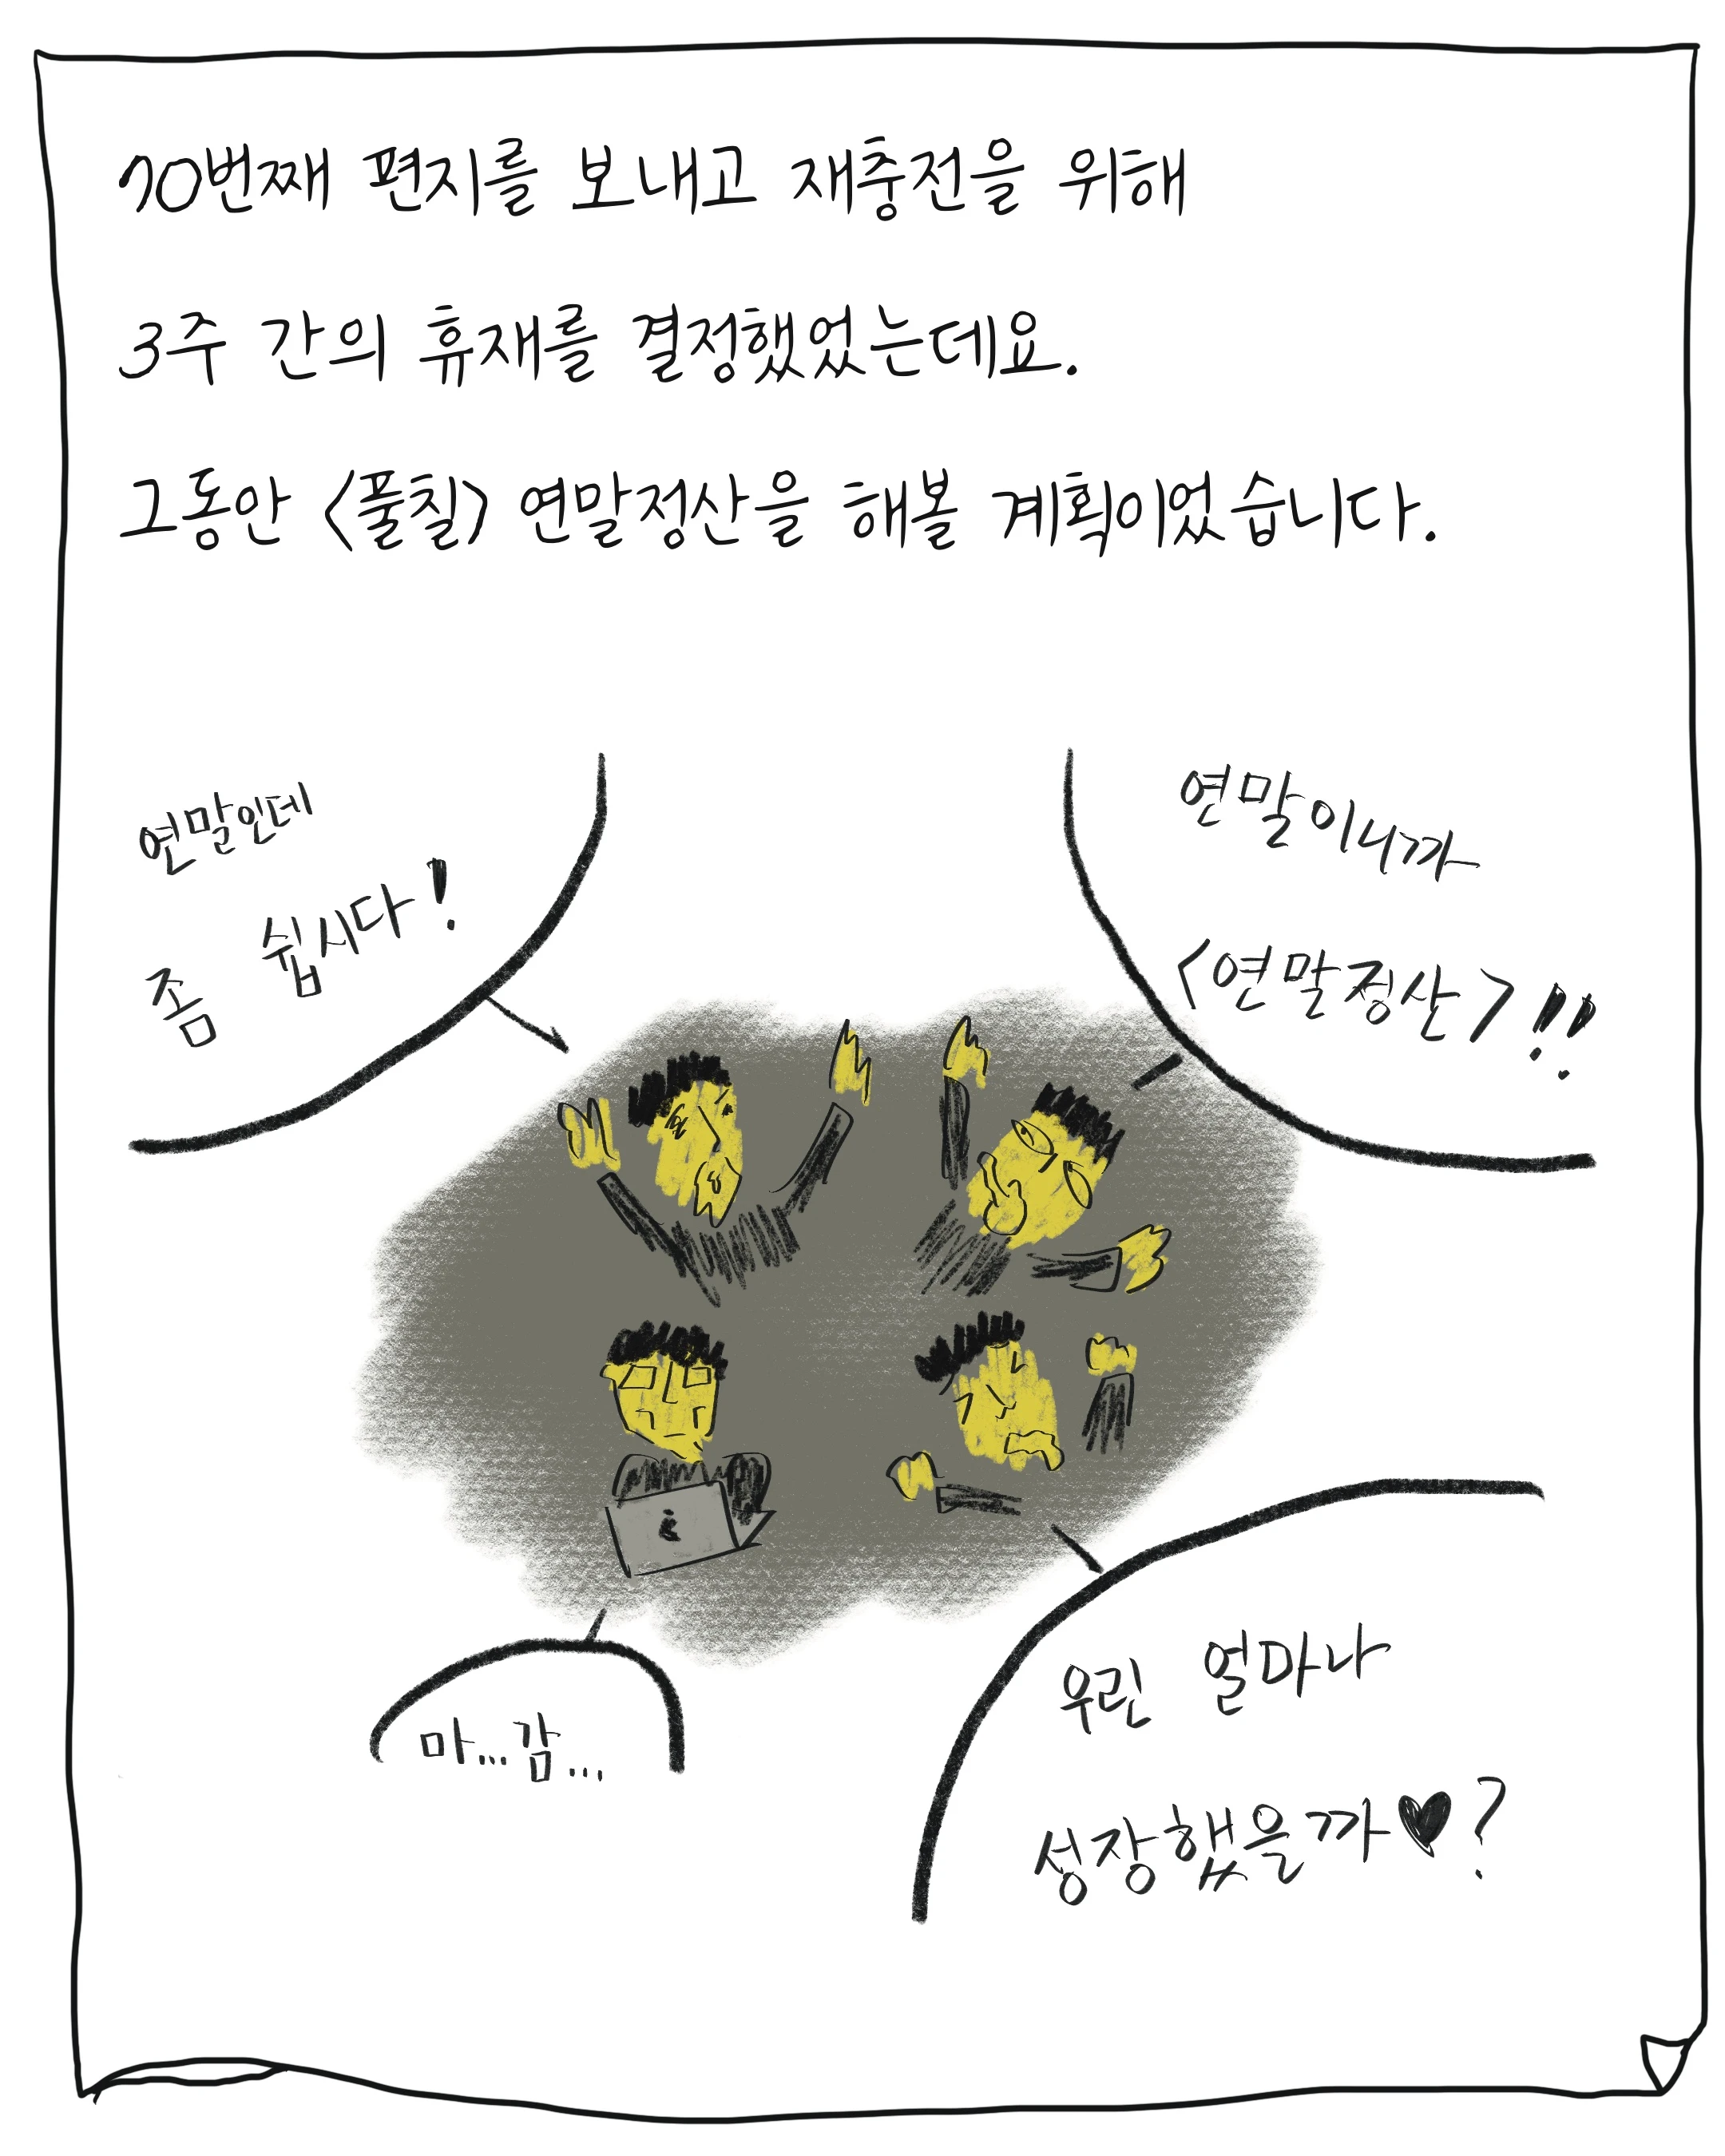 70번째 편지를 보내고 재충전을 위해
3주 간의 휴재를 결정했었는데요.
그동안 <풀칠> 연말정산을 해볼 계획이었습니다.
연말인데
좀 쉽시다!
연말이니까
<연말정산>!!
마...감...
우린 얼마나
성장했을까♥?